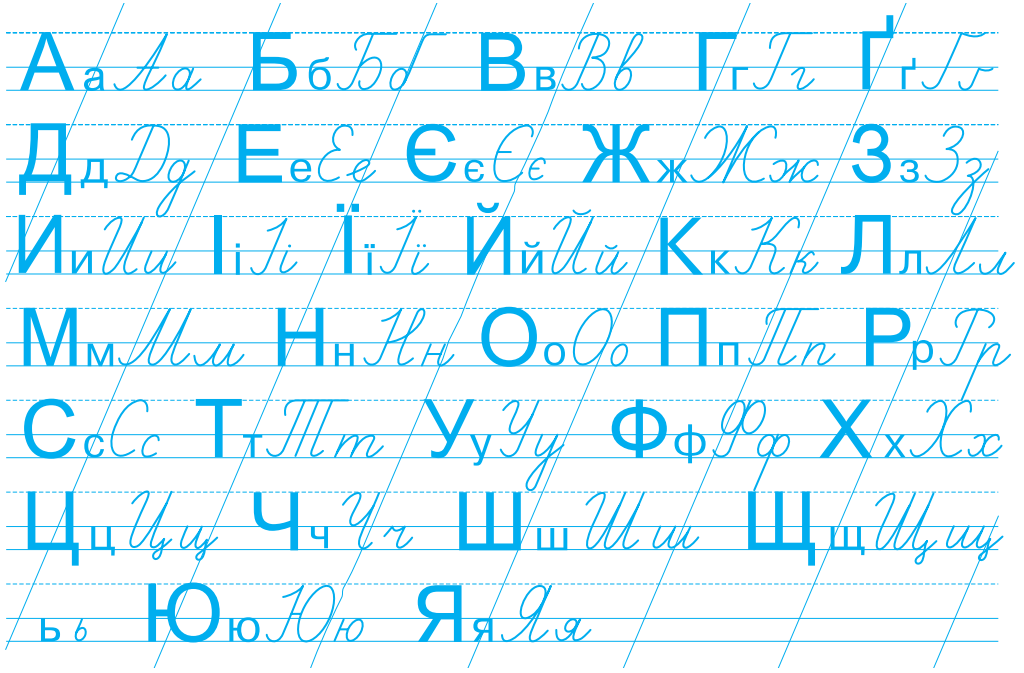 Аа Аа Бб Бб Вв Вв Гг Гг Ґґ Ґґ
Дд Дд Ее Ее Єє Єє Жж Жж Зз Зз
Ии Ии Іі Іі Її Її Йй Йй Кк Кк Лл Лл
Мм Мм Нн Нн Оо Оо Пп Пп Рр Рр
Сс Сс Тт Тт Уу Уу Фф Фф Хх Хх
Цц Цц Чч Чч Шш Шш Щщ Щщ
ь ь Юю Юю Яя Яя